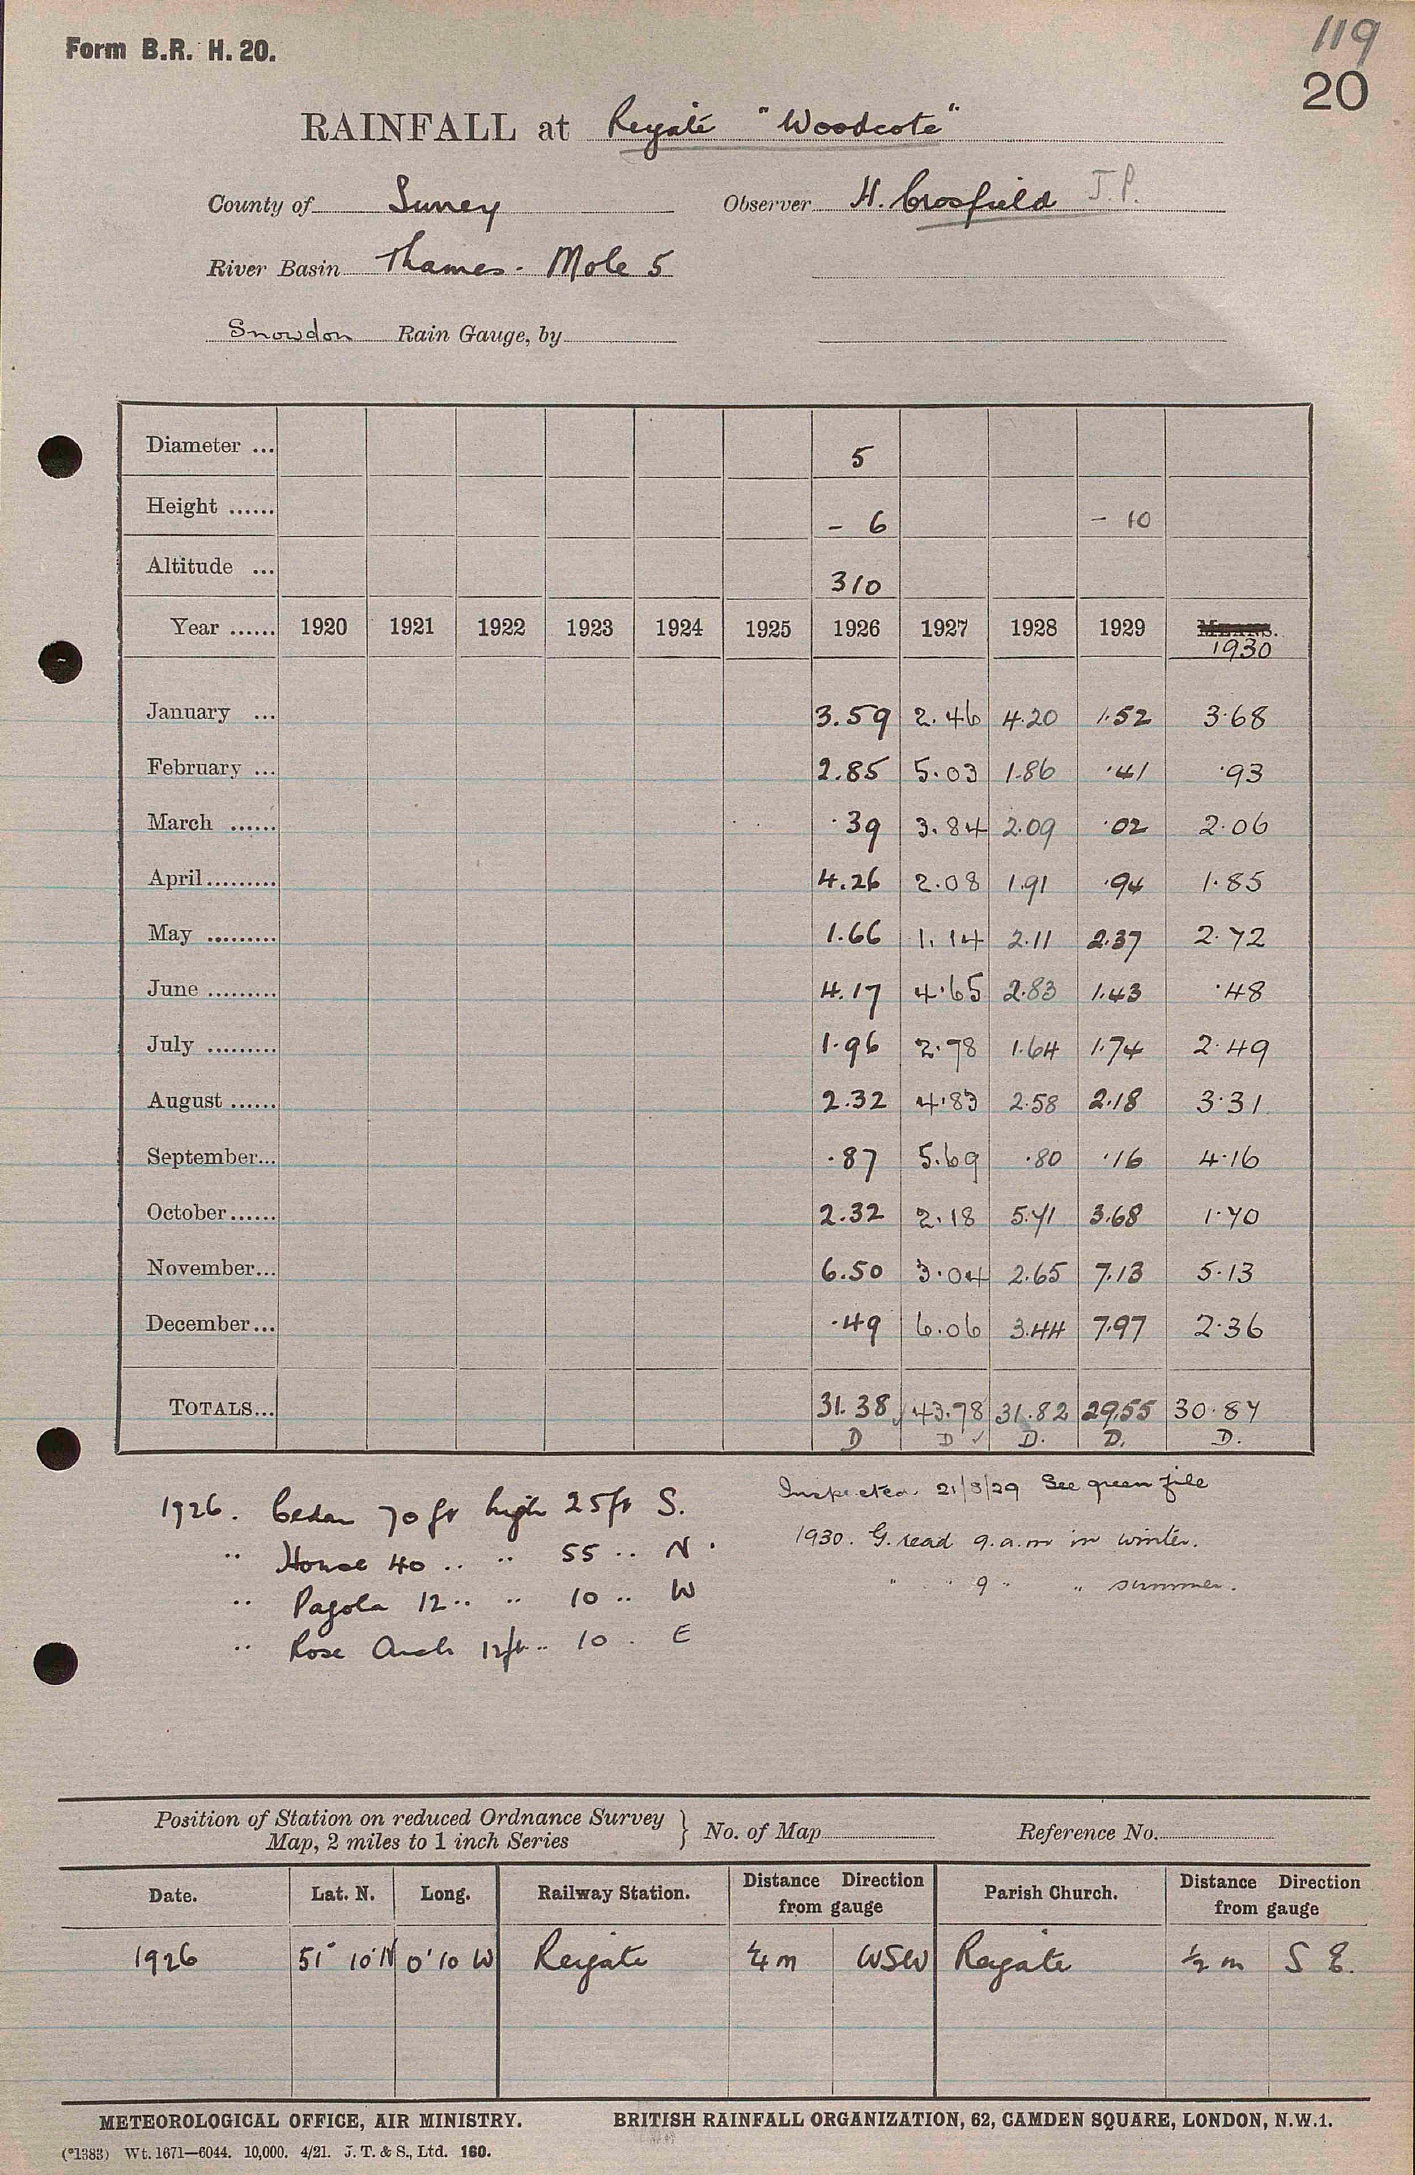 Form B.R. H. 20.
119
20
RAINFALL at Reigate "Woodcote"
County of Surrey Observer H. Crosfield J.P.
River Basin Thames - Mole 5
Snowdon Rain Gauge, by
Diameter ... 5
Height ...... - 6 - 10
Altitude ... 310
Year ...... 1920 1921 1922 1923 1924 1925 1926 1927 1928 1929 MEANS.
1930
January ... 3.59 2.46 4.20 1.52 3.68
February ... 2.85 5.03 1.86 .41 .93
March ...... .39 3.84 2.09 .02 2.06
April ......... 4.26 2.08 1.91 .94 1.85
May ......... 1.66 1.14 2.11 2.37 2.72
June ......... 4.17 4.65 2.83 1.43 .48
July ......... 1.96 2.78 1.64 1.74 2.49
August ...... 2.32 4.83 2.58 2.18 3.31
September... .87 5.69 .80 .16 4.16
October...... 2.32 2.18 5.71 3.68 1.70
November... 6.50 3.04 2.65 7.13 5.13
December... .49 6.06 3.44 7.97 2.36
TOTALS... 31.38 ✓ 43.78 31.82 29.55 30.87
D D ✓ D. D. D.
1926. Cedar 70 ft high 25 ft S.
" House 40 " " 55 " N.
" Pagola 12 " " 10 " W
" Rose Arch 12ft " 10 . E
Inspected 21/8/29 See green file
1930. G. read 9.a.m in winter.
" " 9 " " summer.
Position of Station on reduced Ordnance Survey
Map, 2 miles to 1 inch Series } No. of Map Reference No.
Date. Lat. N. Long. Railway Station. Distance from gauge Direction Parish Church. Distance from gauge Direction
1926 51° 10'N 0°10 W Reigate ¼ m WSW Reigate ½ m S E.
METEOROLOGICAL OFFICE, AIR MINISTRY. BRITISH RAINFALL ORGANIZATION, 62, CAMDEN SQUARE, LONDON, N.W.1.
(*1383) Wt. 1671—6044. 10,000. 4/21. J. T. & S., Ltd. 160.